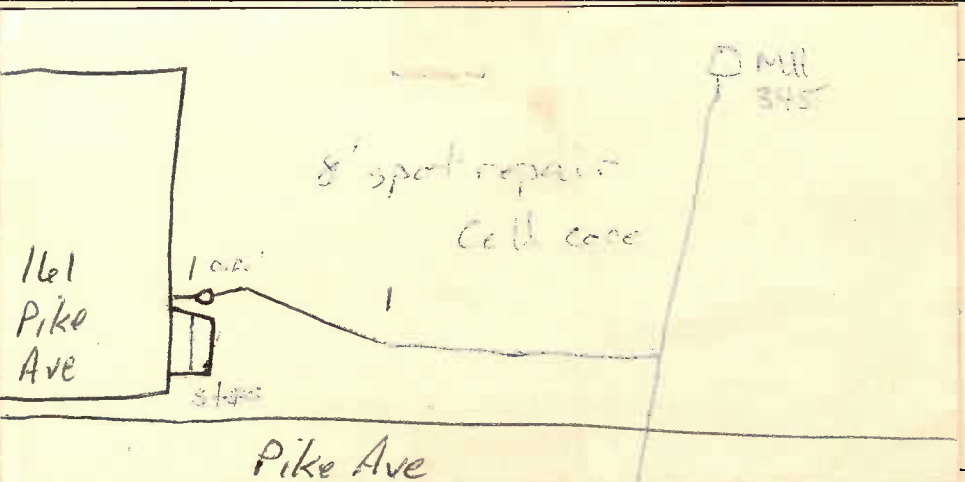 MH
345
8' spot repair
Cell core
161
Pike
Ave
steps
Pike Ave